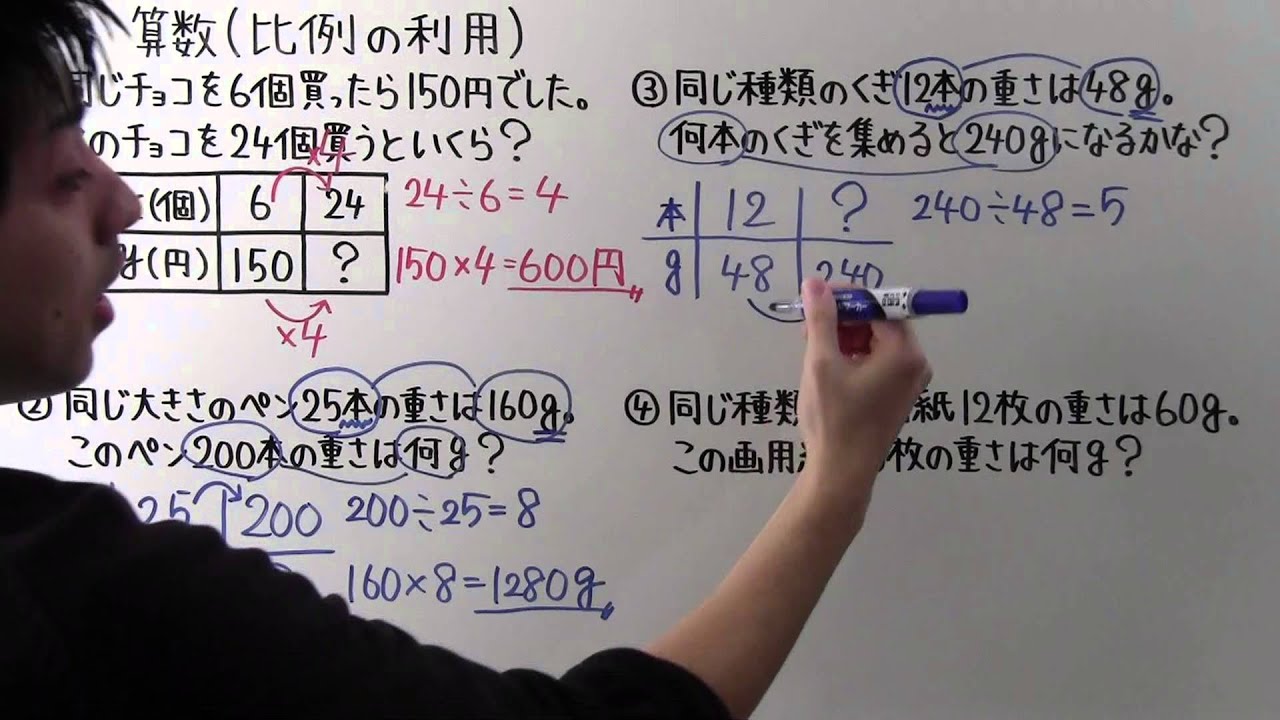 算数(比例の利用)
同じチョコを6個買ったら150円でした。
のチョコを24個買うといくら?
×4
(個) 6 24
24÷6=4
(円) 150 ?
150×4=600円
×4
② 同じ大きさのペン25本の重さは160g。
このペン200本の重さは何g?
25 200
200÷25=8
160×8=1280g
③ 同じ種類のくぎ12本の重さは48g。
何本のくぎを集めると240gになるかな?
本 12 ?
240÷48=5
g 48 240
④ 同じ種類 紙12枚の重さは60g。
この画用 枚の重さは何g?